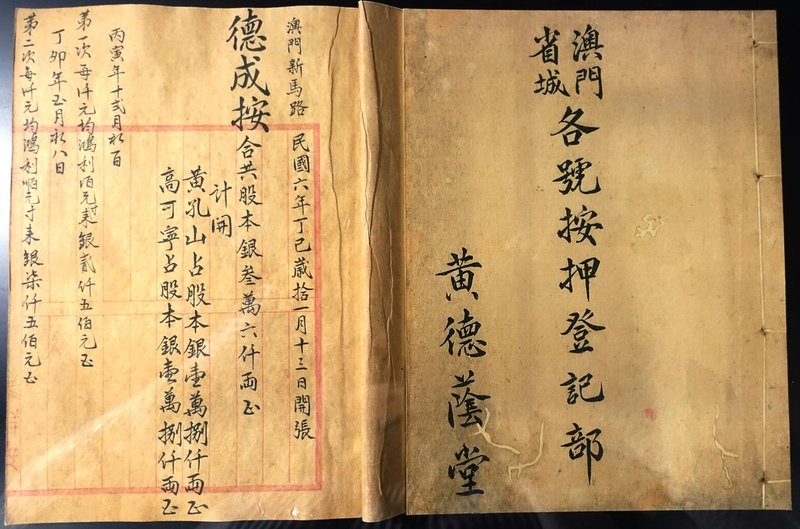 澳門
省城
各號按押登記部
黃德蔭堂
澳門新馬路
民國六年丁巳歲拾一月十三日開張
德成按
合共股本銀叁萬六仟両正
計開
黃孔山占股本銀壹萬捌仟両正
高可寧占股本銀壹萬捌仟両正
丙寅年十弍月初
第一次每仟元均鴻利
來銀貳仟五佰元正
丁卯年五月初八日
第二次每仟元均鴻利
來銀柒仟五佰元正